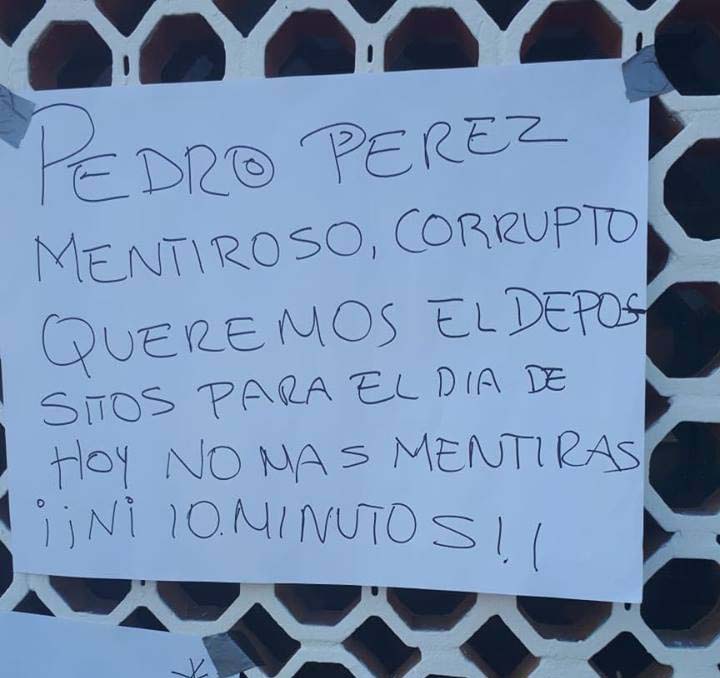 PEDRO PEREZ
MENTIROSO, CORRUPTO
QUEREMOS EL DEPOS
SITOS PARA EL DIA DE
HOY NO MAS MENTIRAS
¡¡Ni 10.MINUTOS!!
*